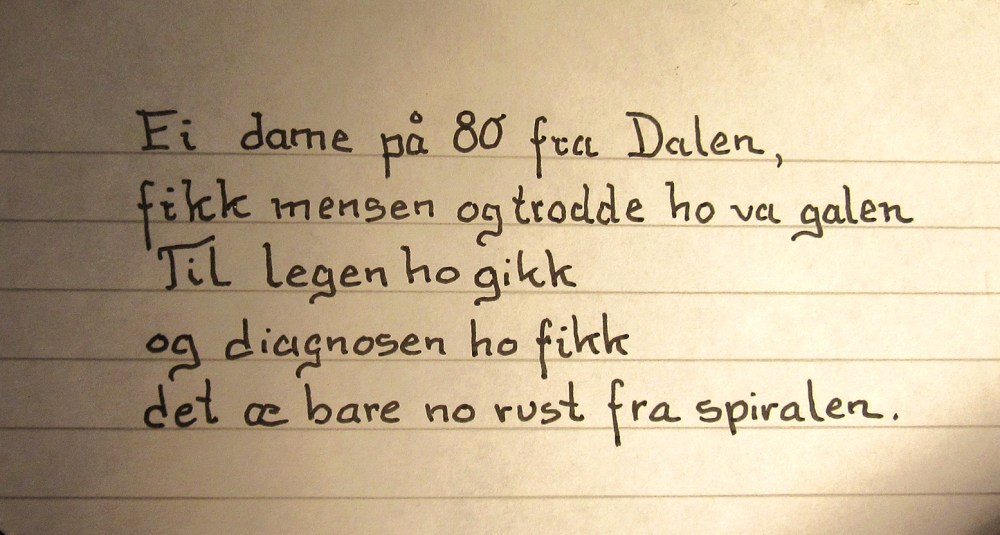 Ei dame på 80 fra Dalen,
fikk mensen og trodde ho va galen
Til legen ho gikk
og diagnosen ho fikk
det æ bare no rust fra spiralen.